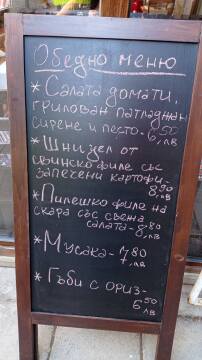 Обедно меню
* Салата домати,
грилован патладжан
сирене и песто- 6,50
лв
* Шницел от
свинско филе със
запечени картофи-
8,90
лв
* Пилешко филе на
скара със свежа
салата- 8,80
лв
* Мусака- 7,80
лв
* Гъби с ориз-
6,50
лв